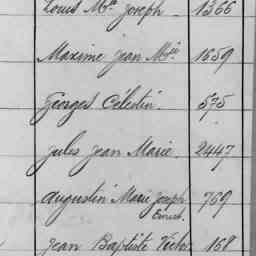 Louis Mie Joseph 1366
Maxime Jean Mie 1659
Georges Célestin. 575
Jules Jean Marie. 2447
Augustin Marie Joseph 769
Ernest.
Jean Baptiste Victor 168